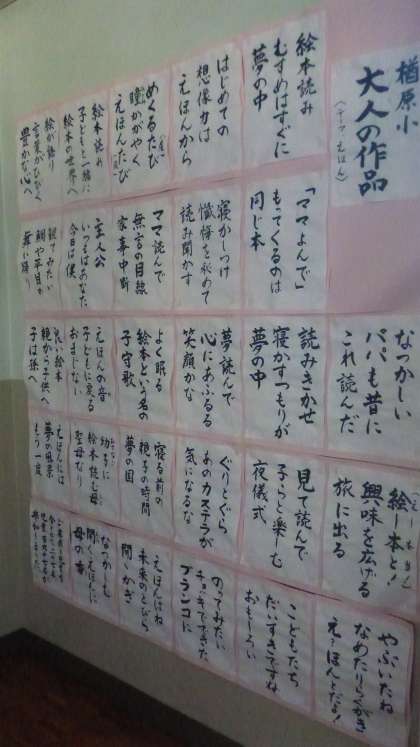 楢原小
大人の作品
（テーマ えほん）
絵本読み
むすめはすぐに
夢の中
はじめての
想像力は
えほんから
めくるたび
瞳かがやく
えほんたび
絵本読み
子どもと一緒に
絵本の世界へ
絵が語り
言葉がひびく
豊かな心へ
「ママよんで」
もってくるのは
同じ本
寝かしつけ
懺悔を込めて
読み聞かす
ママ読んで
無言の目線
家事中断
主人公
いつはあなた
今日は僕
観てみたい
鯛や平目が
舞い踊り
なつかしい
パパも昔に
これ読んだ
読みきかせ
寝かすつもりが
夢の中
夢読んで
心にあふるる
笑顔かな
よく眠る
絵本という名の
子守歌
えほんの音
子どもに戻る
おまじない
良い絵本
親から子供へ
子は孫へ
絵本と！
興味を広げる
旅に出る
見て読んで
子らと楽しむ
夜儀式
ぐりとぐら
あのカステラが
気になるな
寝る前の
親子の時間
夢の国
幼子に
絵本読む母
聖母なり
えほんには
夢の風景
もう一度
やぶいたね
なめたりらくがき
えほんとだな！
こどもたち
だいすきですね
おもしろい
のってみたい
チョッキでできた
ブランコに
えほんはね
未来のとびら
開くかぎ
なつかしむ
開くえほんに
母の声